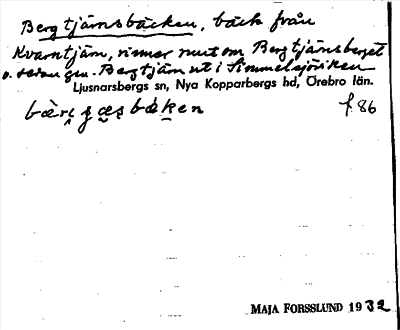 Bergtjärnsbäcken, bäck från
Kvarntjärn, rinner runt om Bergtjärnsberget
o. sedan gm. Bergtjärn ut i Simmelsjöviken
Ljusnarsbergs sn, Nya Kopparbergs hd, Örebro län.
f. 86
MAJA FORSSLUND 1932